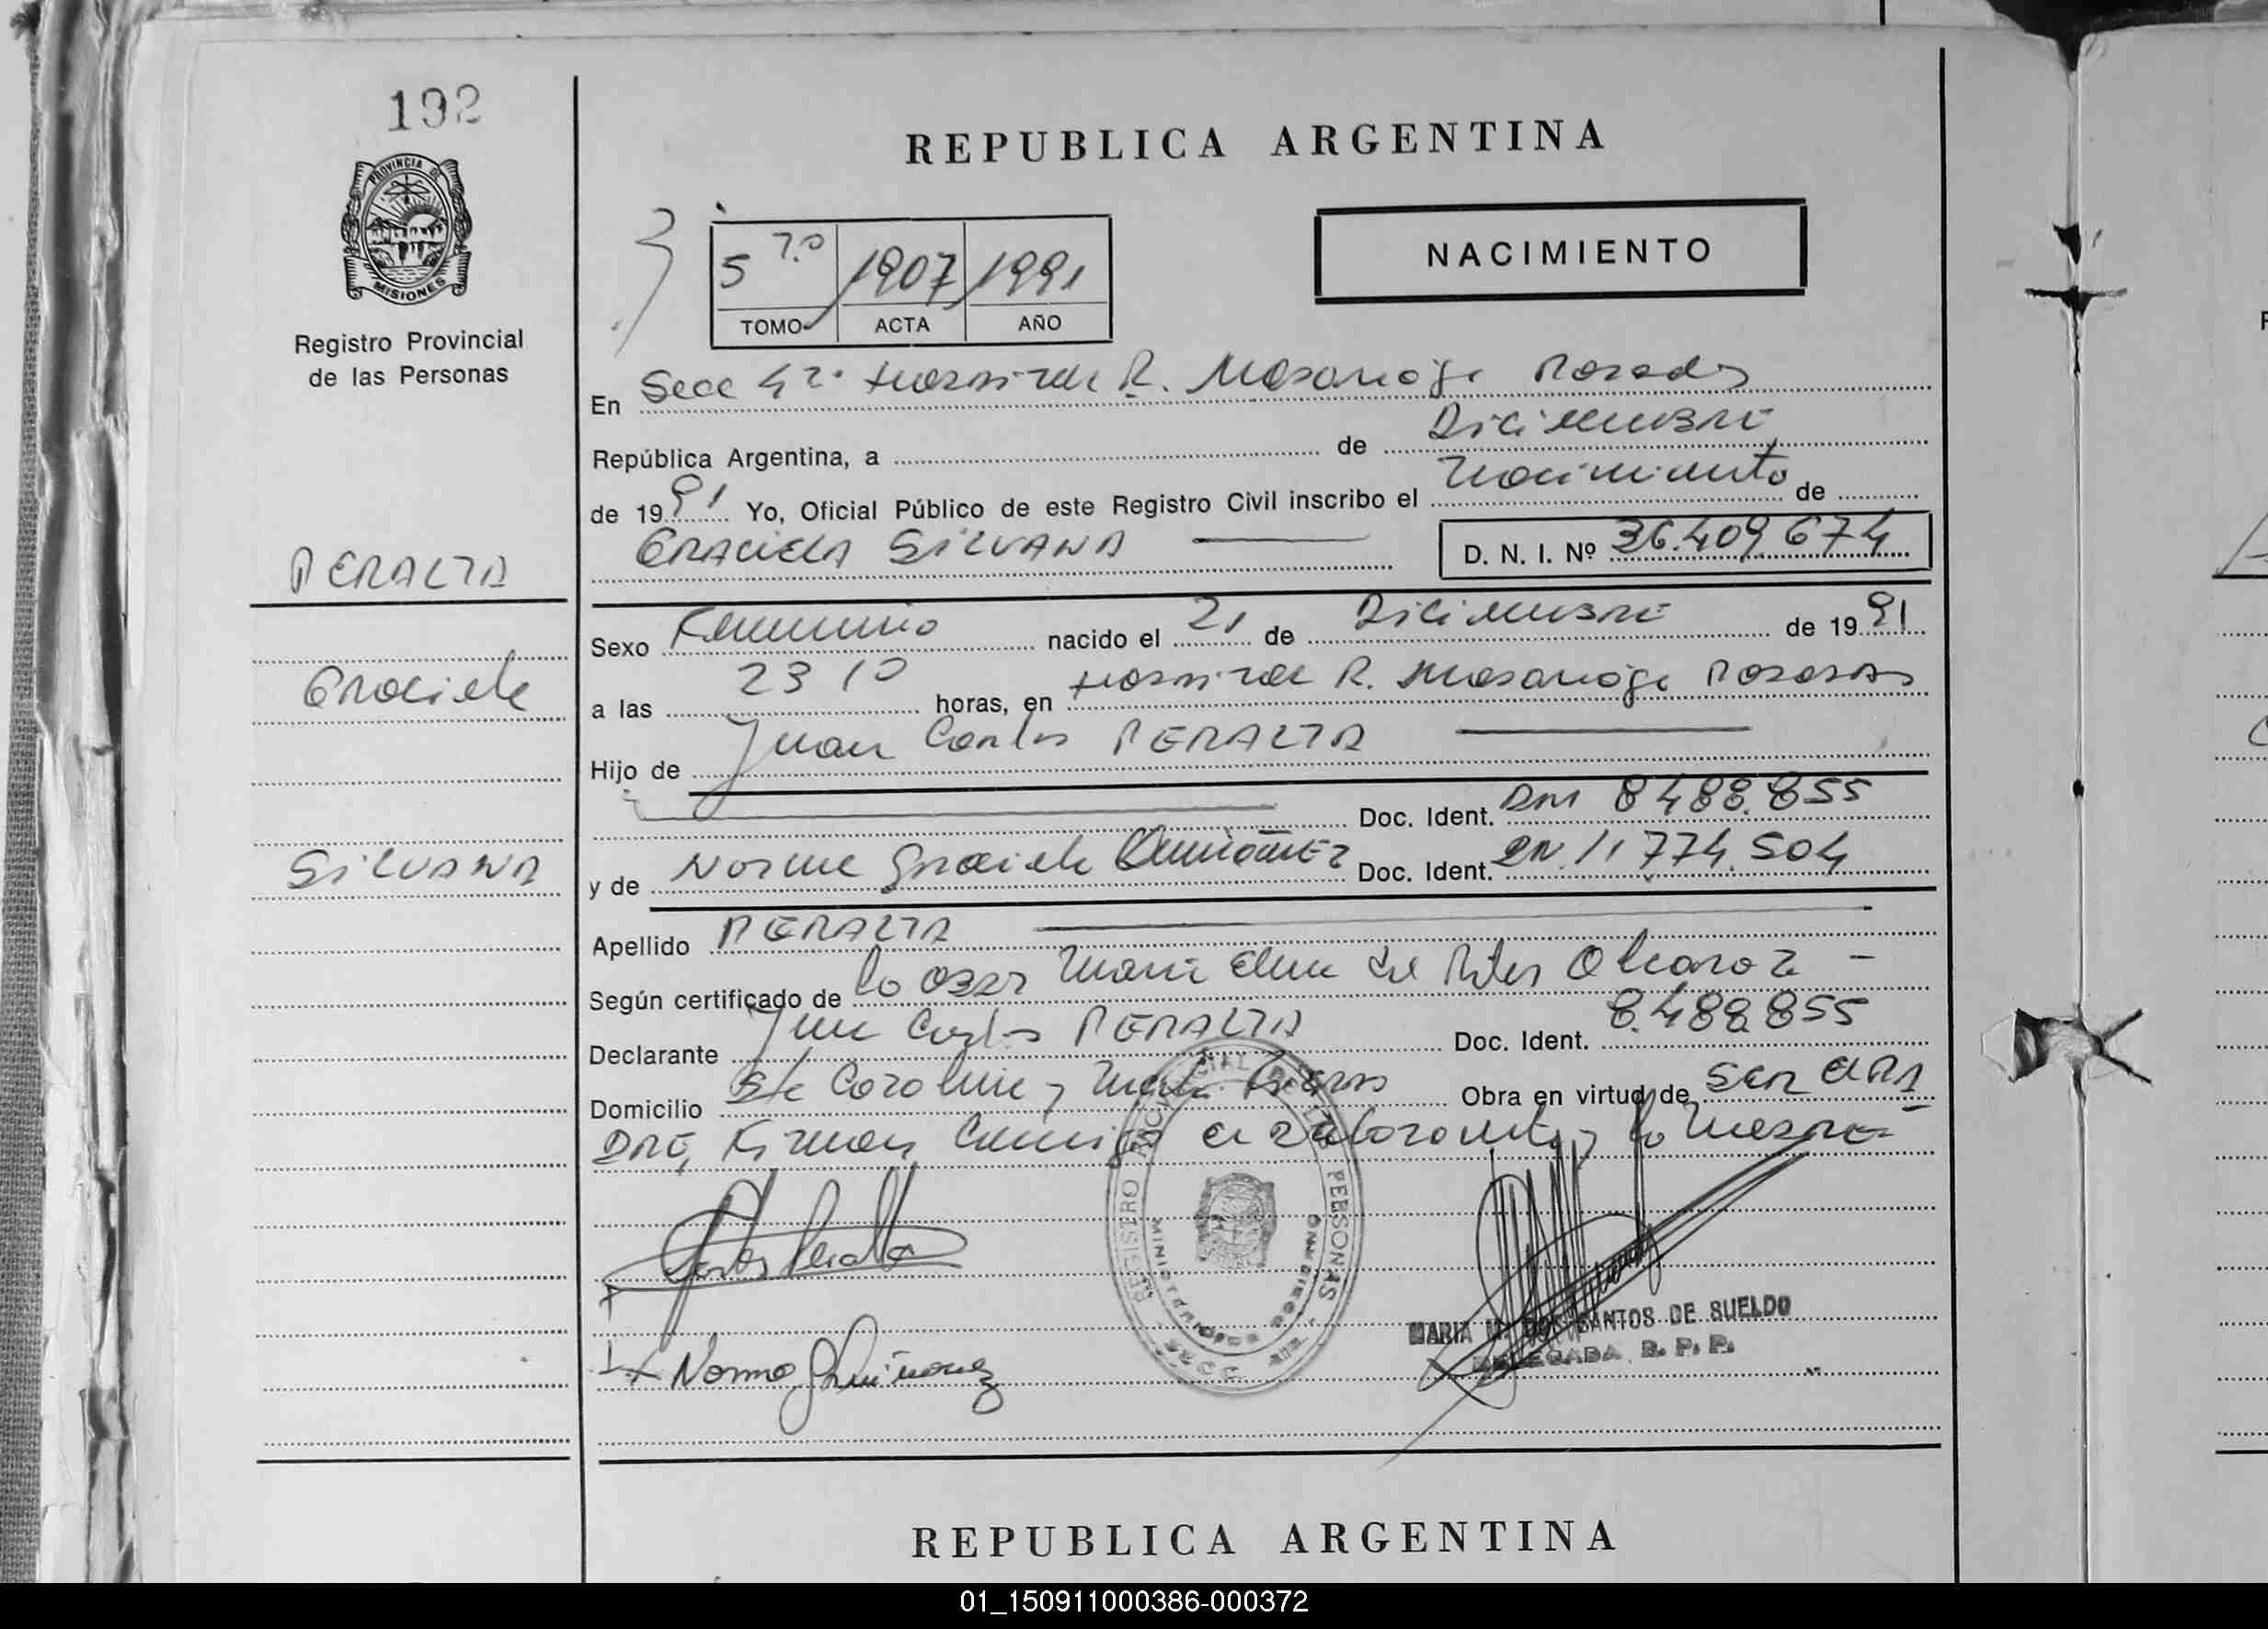 192
PROVINCIA DE
MISIONES
Registro Provincial
de las Personas
PERALTA
Graciela
SILVANA
REPUBLICA ARGENTINA
5 7º 1907 1991
TOMO ACTA AÑO
NACIMIENTO
En Secc 4ta Hospital R. Madariaga Posadas
República Argentina, a de Diciembre
de 1991 Yo, Oficial Público de este Registro Civil inscribo el Nacimiento de
GRACIELA SILVANA D. N. I. Nº 36.409.674
Sexo Femenino nacido el 21 de Diciembre de 1991
a las 23 10 horas, en Hospital R. Madariaga Posadas
Hijo de Juan Carlos PERALTA
Doc. Ident. DNI 8488.855
y de Norma Graciela Quiñonez Doc. Ident. 11 774.504
Apellido PERALTA
Según certificado de la Obst Maria del Alcaraz -
Declarante Juan Carlos PERALTA Doc. Ident. 8.488.855
Domicilio Sta Carolina y Obra en virtud de SER EL PA
DRE, Firman conmigo el declarante y la madre
Carlos Peralta
Norma G Quiñonez
REGISTRO PROVINCIAL DE LAS PERSONAS
MARIA DOS SANTOS DE SUELDO
DELEGADA R. P. P.
REPUBLICA ARGENTINA
01_150911000386-000372